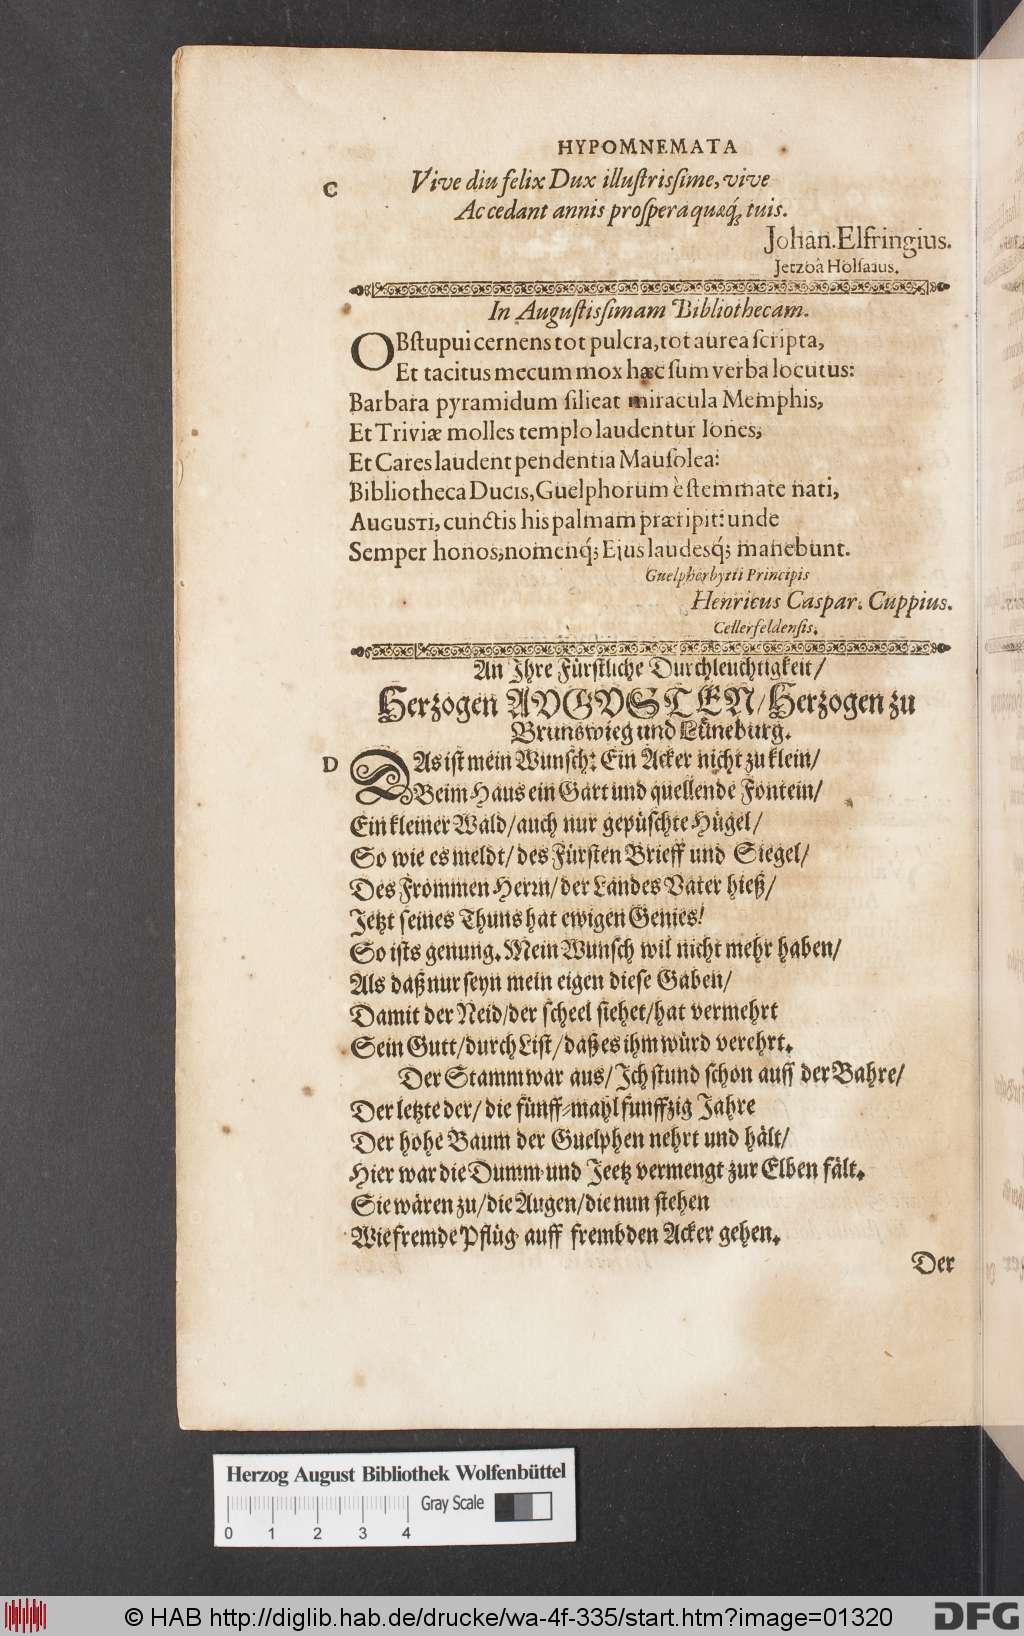 HYPOMNEMATA
C
Vive diu felix Dux illustrissime, vive
Accedant annis prospera quæq́; tuis.
Johan. Elfringius.
Jetzoâ Holsatus.
In Augustissimam Bibliothecam.
OBstupui cernens tot pulcra, tot aurea scripta,
Et tacitus mecum mox hæc sum verba locutus:
Barbara pyramidum silieat miracula Memphis,
Et Triviæ molles templo laudentur Iones;
Et Cares laudent pendentia Mausolea:
Bibliotheca Ducis, Guelphorum è stemmate nati,
AUGUSTI, cunctis his palmam præripit: unde
Semper honos, nomenq́; Ejus laudesq́; manebunt.
Guelpherbyrti Principis
Henricus Caspar. Cuppius.
Cellerfeldensis.
An Ihre Fürstliche Durchleuchtigkeit/
Herzogen AVGVSTEN/ Herzogen zu
Brunswieg und Lüneburg.
D
DAs ist mein Wunsch: Ein Acker nicht zu klein/
Beim Haus ein Gart und quellende Fontein/
Ein kleiner Wald/ auch nur gepüschte Hügel/
So wie es meldt/ des Fürsten Brieff und Siegel/
Des Frommen Herrn/ der Landes Vater hieß/
Jetzt seines Thuns hat ewigen Genies!
So ists genung. Mein Wunsch wil nicht mehr haben/
Als daß nur seyn mein eigen diese Gaben/
Damit der Neid/ der scheel siehet/ hat vermehrt
Sein Gutt/ durch List/ daß es ihm würd verehrt.
Der Stamm war aus/ Ich stund schon auff der Bahre/
Der letzte der/ die fünff-mahl funffzig Jahre
Der hohe Baum der Guelphen nehrt und hält/
Hier war die Dumm- und Jeetz vermengt zur Elben fält.
Sie wären zu/ die Augen/ die nun stehen
Wie fremde Pflüg- auff frembden Acker gehen.
Der
Herzog August Bibliothek Wolfenbüttel
Gray Scale
0 1 2 3 4
© HAB http://diglib.hab.de/drucke/wa-4f-335/start.htm?image=01320
DFG